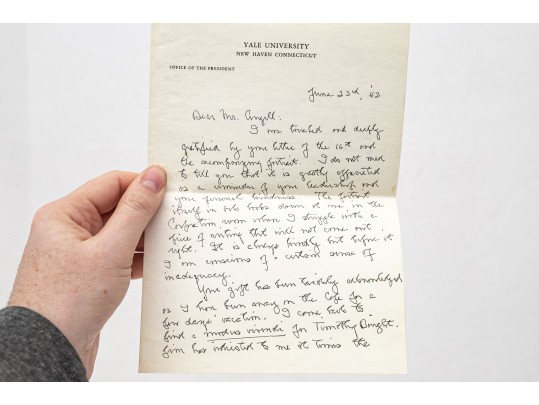 YALE UNIVERSITY
NEW HAVEN CONNECTICUT
OFFICE OF THE PRESIDENT
June 23rd, '42
Dear Mr. Angell:
I am touched and deeply
gratified by your letter of the 16th and
the accompanying portrait. I do not need
to tell you that it is greatly appreciated
as a reminder of your leadership and
your personal kindness. The portrait
itself in oils looks down at me in the
Corporation room when I struggle with a
piece of writing that will not come out
right. It is always kindly but before it
I am conscious of a certain sense of
inadequacy.
Your gift has been tardily acknowledged
as I have been away on the Cape for a
few days' vacation. I came back to
find a modus vivendi for Timothy Dwight.
has insisted to me at times the